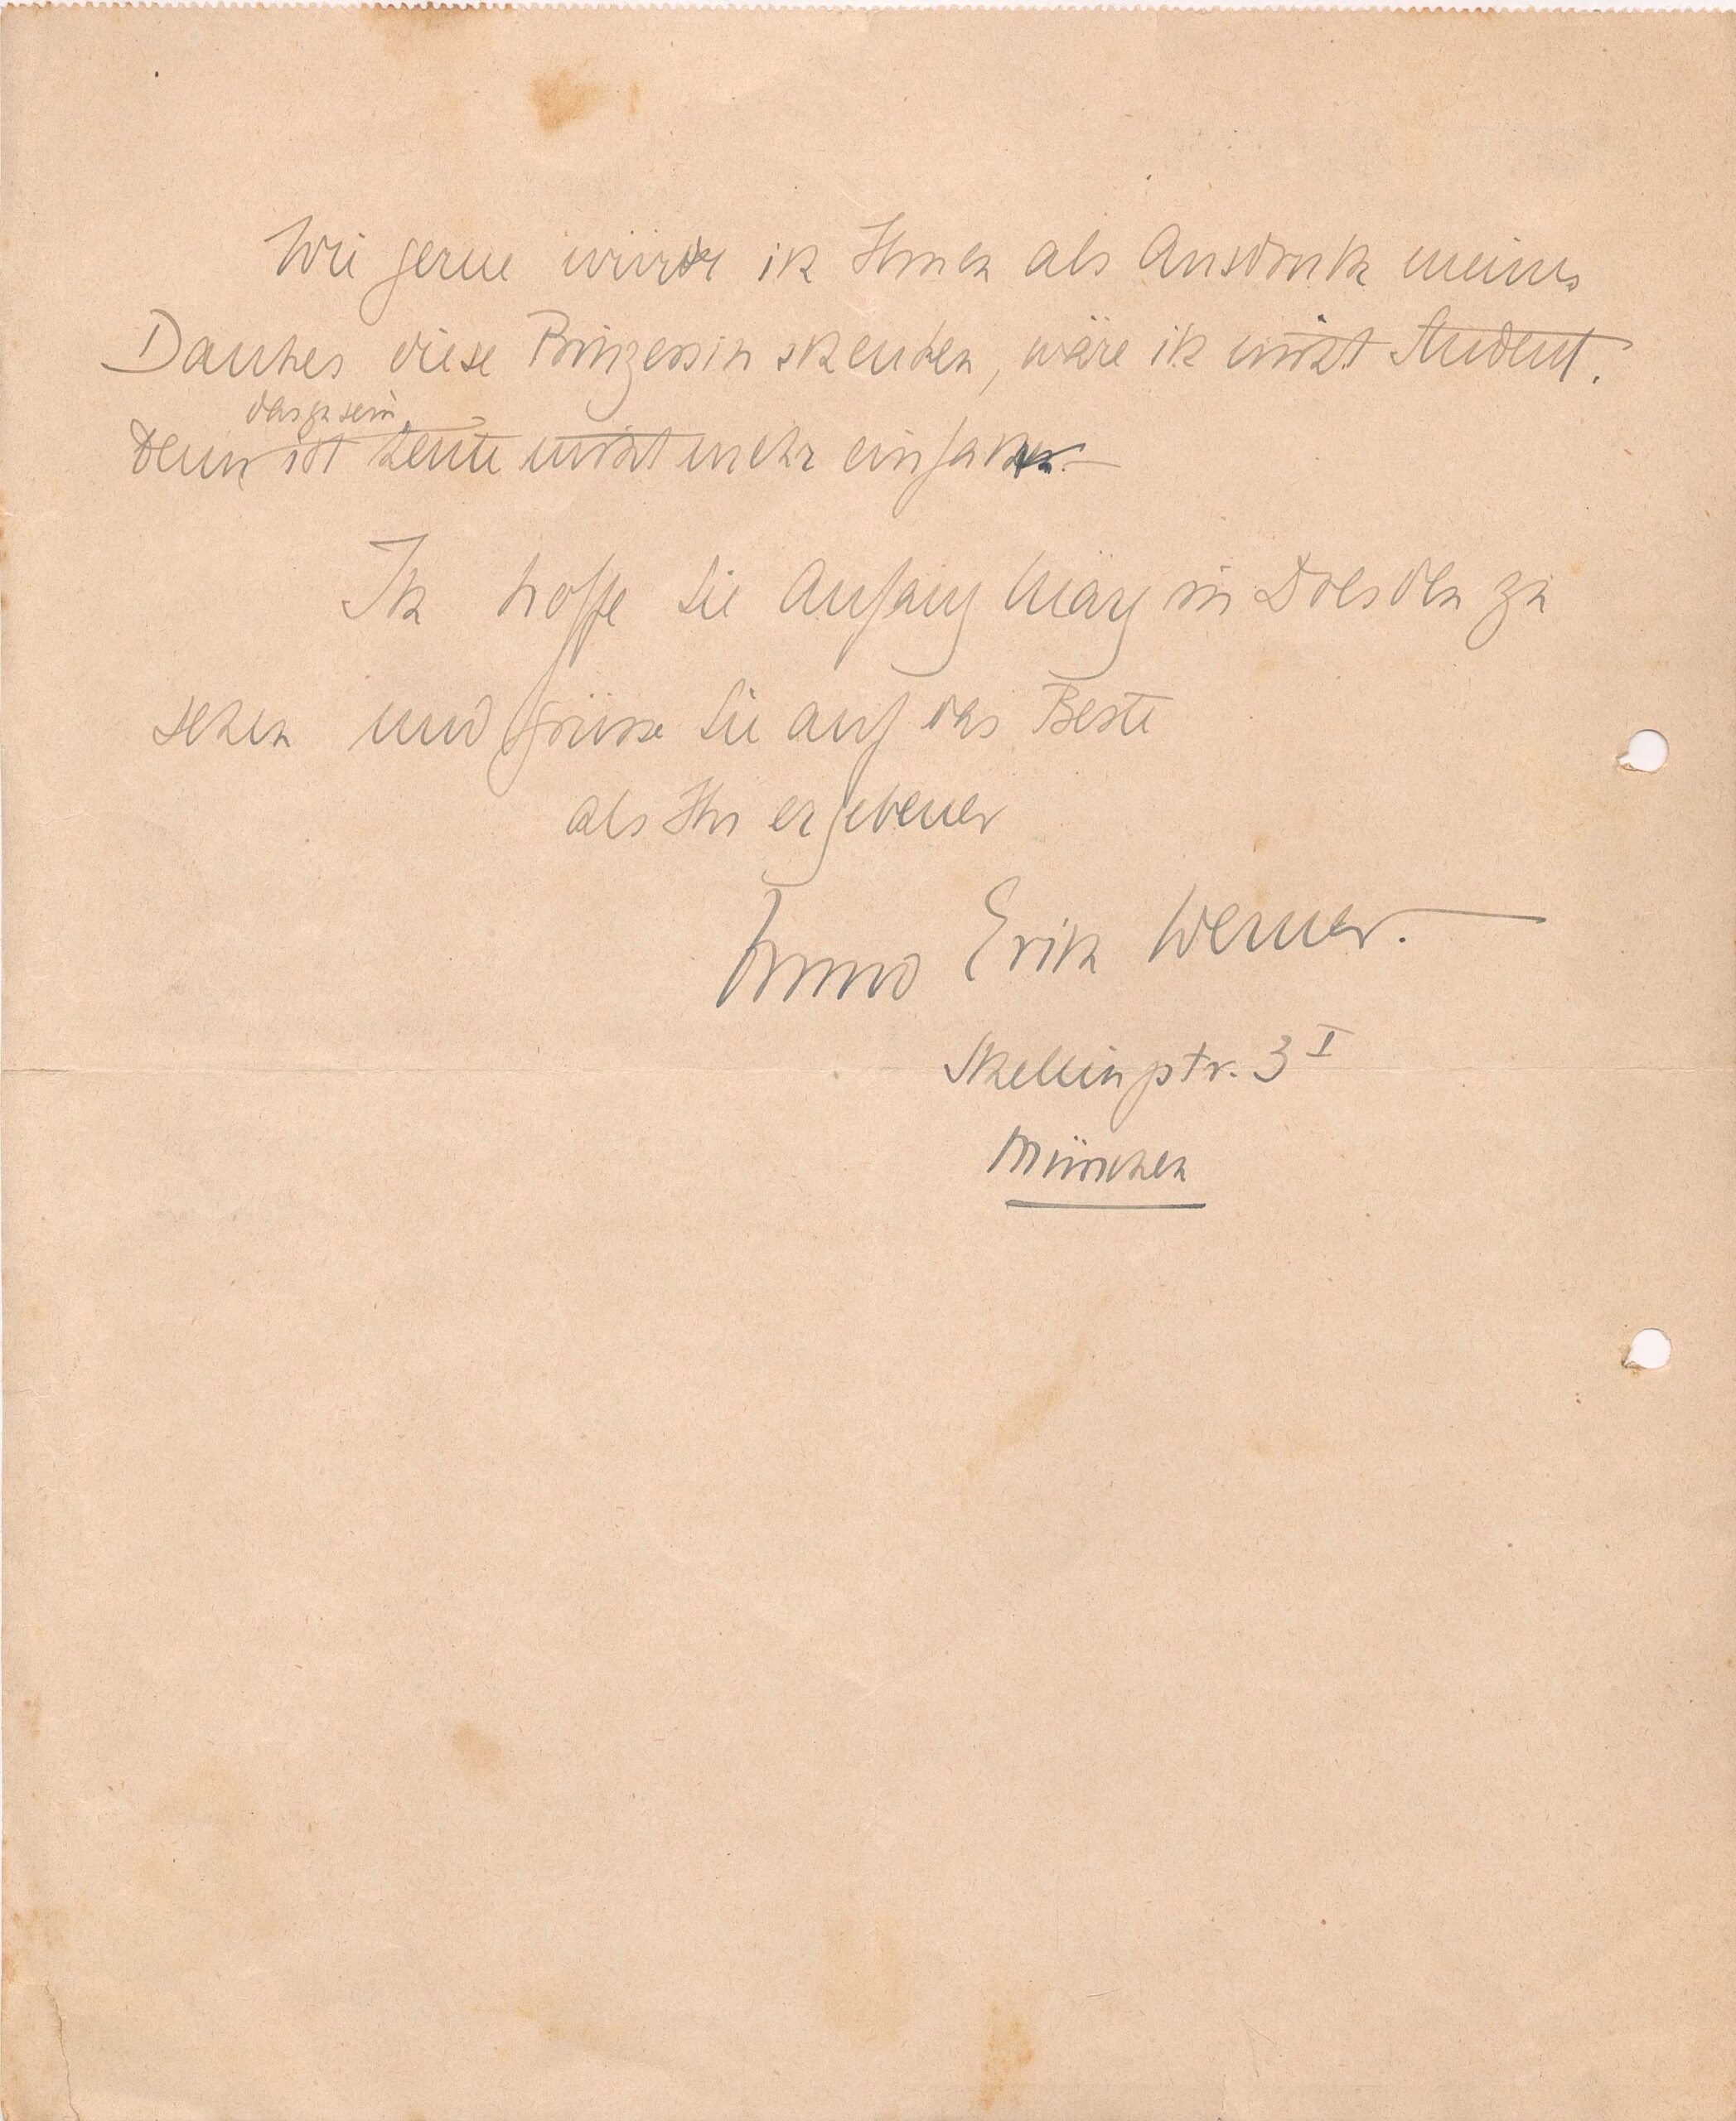 Wie gerne würde ich Ihnen als Ausdruck meines
Dankes diese Prinzessin schenken, wäre ich nicht Student.
das zu sein,
Denn ist heute nicht mehr einfach.—
Ich hoffe Sie Anfang März in Dresden zu
sehen und grüsse Sie auf das Beste
als Ihr ergebener
Bruno Erich Werner.
Schellingstr. 3 I
München